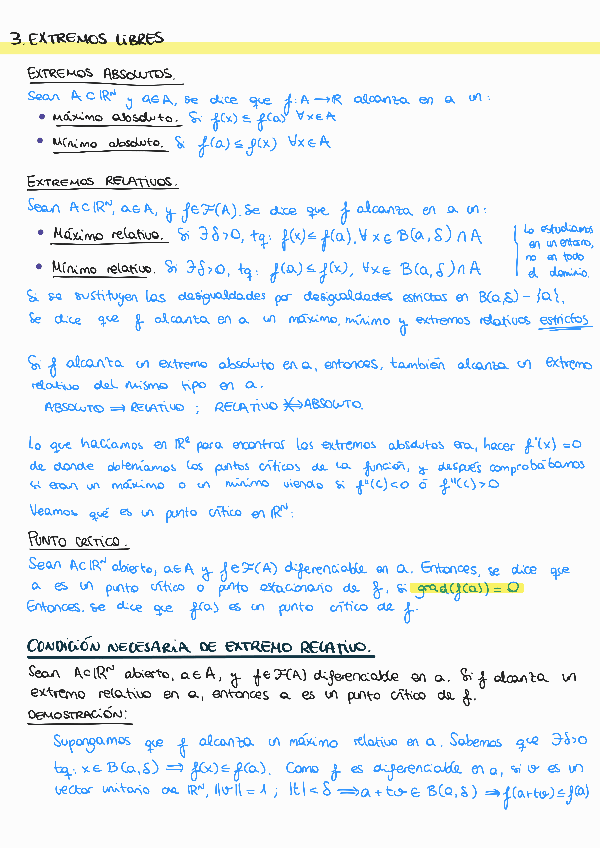 3. EXTREMOS LIBRES
EXTREMOS ABSOLUTOS.
Sean A⊂ℝᴺ y a∈A, se dice que f: A→ℝ alcanza en a un:
• Máximo absoluto. Si f(x) ≤ f(a) ∀x∈A
• Mínimo absoluto. Si f(a) ≤ f(x) ∀x∈A
EXTREMOS RELATIVOS.
Sean A⊂ℝᴺ, a∈A, y f∈F(A). Se dice que f alcanza en a un:
• Máximo relativo. Si ∃δ>0, tq: f(x) ≤ f(a), ∀x∈B(a,δ)∩A
• Mínimo relativo. Si ∃δ>0, tq: f(a) ≤ f(x), ∀x∈B(a,δ)∩A
Lo estudiamos
en un entorno,
no en todo
el dominio.
Si se sustituyen las desigualdades por desigualdades estrictas en B(a,δ) - {a},
se dice que f alcanza en a un máximo, mínimo y extremos relativos estrictos
Si f alcanza un extremo absoluto en a, entonces, también alcanza un extremo
relativo del mismo tipo en a.
ABSOLUTO ⇒ RELATIVO ; RELATIVO ⇏ ABSOLUTO.
Lo que hacíamos en ℝ² para encontrar los extremos absolutos era, hacer f'(x) = 0
de donde obteníamos los puntos críticos de la función, y después comprobábamos
si eran un máximo o un mínimo viendo si f''(c)<0 ó f''(c)>0
Veamos qué es un punto crítico en ℝᴺ:
PUNTO CRÍTICO.
Sean A⊂ℝᴺ abierto, a∈A y f∈F(A) diferenciable en a. Entonces, se dice que
a es un punto crítico o punto estacionario de f, si grad(f(a)) = 0
Entonces, se dice que f(a) es un punto crítico de f.
CONDICIÓN NECESARIA DE EXTREMO RELATIVO.
Sean A⊂ℝᴺ abierto, a∈A, y f∈F(A) diferenciable en a. Si f alcanza un
extremo relativo en a, entonces a es un punto crítico de f.
DEMOSTRACIÓN:
Supongamos que f alcanza un máximo relativo en a. Sabemos que ∃δ>0
tq: x∈B(a,δ) ⇒ f(x) ≤ f(a). Como f es diferenciable en a, si v es un
vector unitario de ℝᴺ, ||v|| = 1 ; |t| < δ ⇒ a + tv ∈ B(a,δ) ⇒ f(a+tv) ≤ f(a)